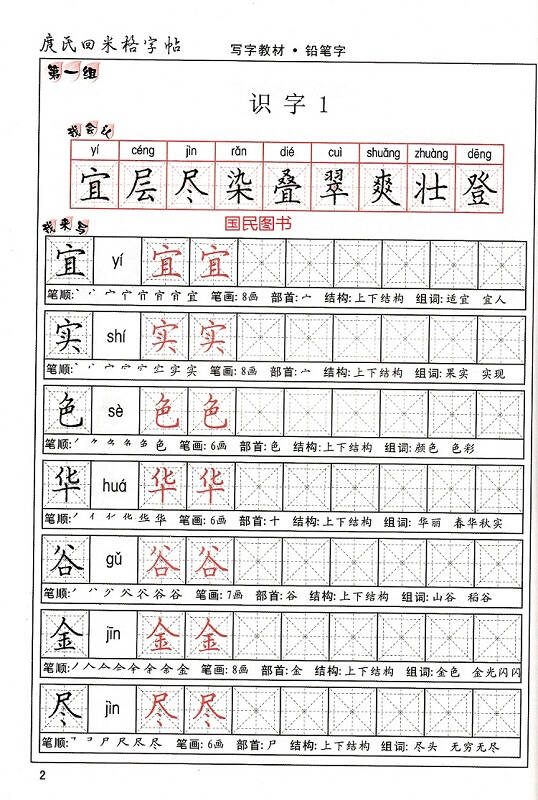 庹氏田米格字帖
写字教材·铅笔字
第一组
识字1
我会认
yí céng jìn rǎn dié cuì shuǎng zhuàng dēng
宜 层 尽 染 叠 翠 爽 壮 登
国民图书
我来写
宜 yí 宜 宜
笔顺: 笔画:8画 部首:宀 结构:上下结构 组词:适宜 宜人
实 shí 实 实
笔顺: 笔画:8画 部首:宀 结构:上下结构 组词:果实 实现
色 sè 色 色
笔顺: 笔画:6画 部首:色 结构:上下结构 组词:颜色 色彩
华 huá 华 华
笔顺: 笔画:6画 部首:十 结构:上下结构 组词:华丽 春华秋实
谷 gǔ 谷 谷
笔顺: 笔画:7画 部首:谷 结构:上下结构 组词:山谷 稻谷
金 jīn 金 金
笔顺: 笔画:8画 部首:金 结构:上下结构 组词:金色 金光闪闪
尽 jìn 尽 尽
笔顺: 笔画:6画 部首:尸 结构:上下结构 组词:尽头 无穷无尽
2